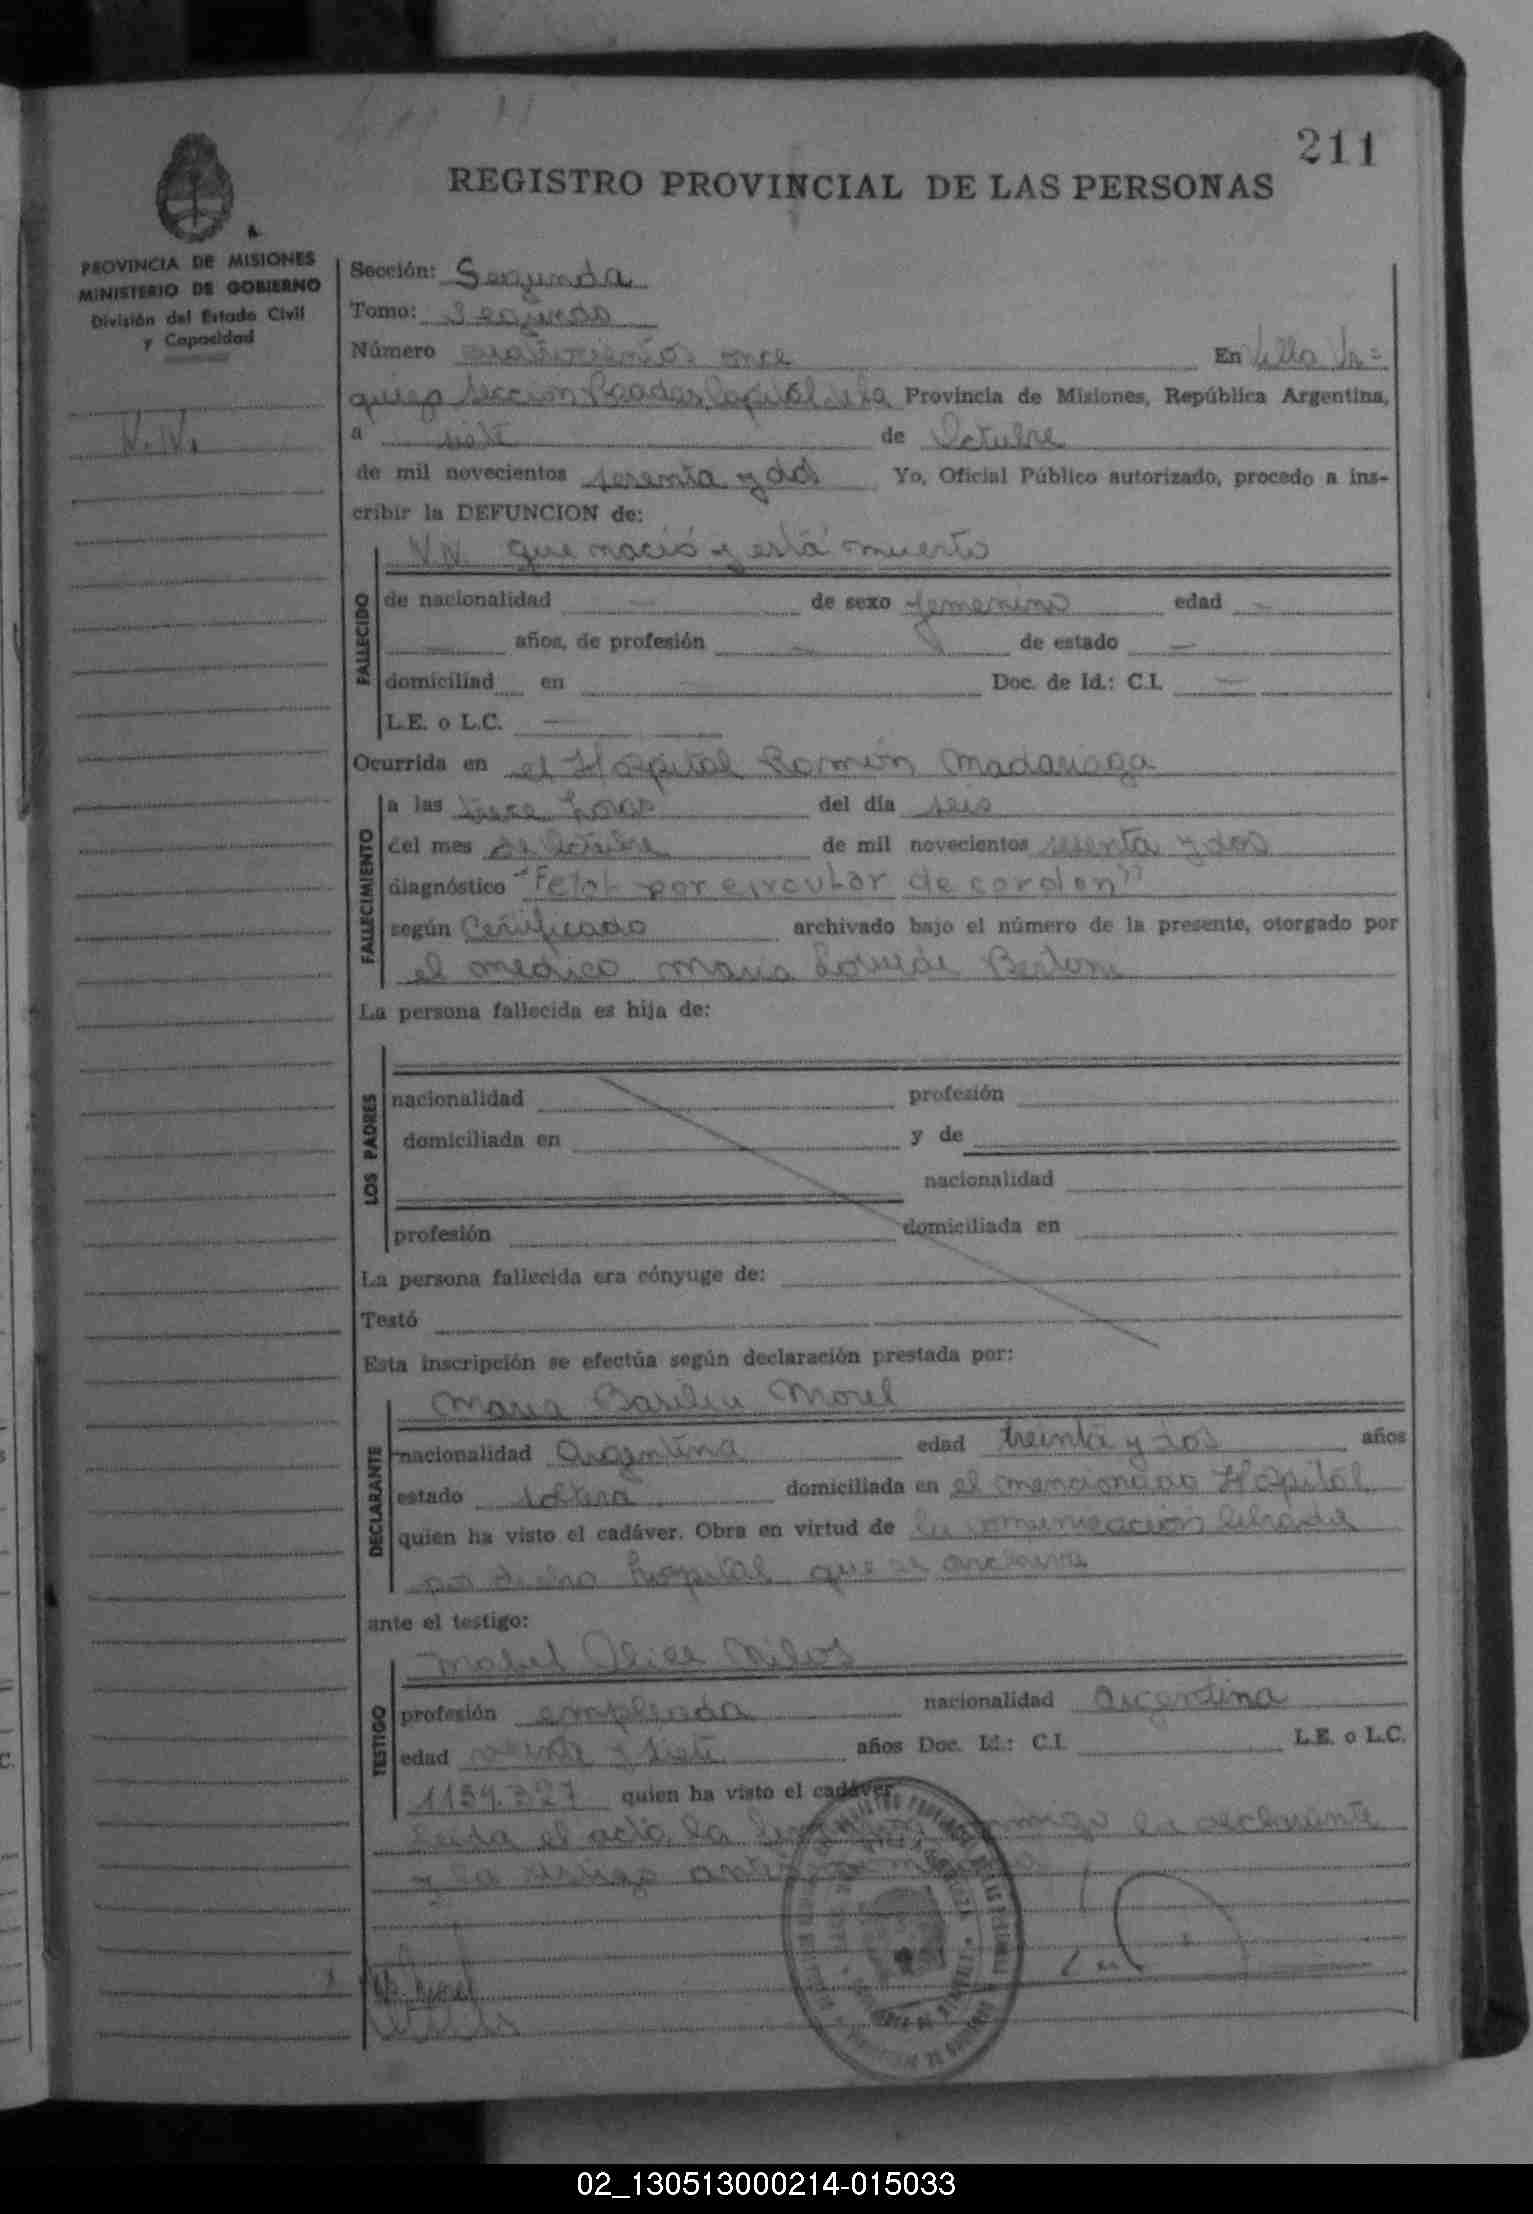 211
REGISTRO PROVINCIAL DE LAS PERSONAS
PROVINCIA DE MISIONES
MINISTERIO DE GOBIERNO
División del Estado Civil
y Capacidad
N.N.
Sección: Segunda
Tomo: Segundo
Número cuatrocientos once En Villa Ur=
quiza Sección Posadas Capital de la Provincia de Misiones, República Argentina,
a siete de Octubre
de mil novecientos sesenta y dos Yo, Oficial Público autorizado, procedo a ins-
cribir la DEFUNCION de:
N.N. que nació y está muerto
FALLECIDO
de nacionalidad — de sexo femenino edad —
— años, de profesión — de estado —
domiciliad en — Doc. de Id.: C.I. —
L.E. o L.C. —
Ocurrida en el Hospital Ramón Madariaga
FALLECIMIENTO
a las trece horas del día seis
del mes de Octubre de mil novecientos sesenta y dos
diagnóstico "Fetal por circular de cordon"
según Certificado archivado bajo el número de la presente, otorgado por
el médico María Bertoni
La persona fallecida es hija de:
LOS PADRES
nacionalidad profesión
domiciliada en y de
nacionalidad
profesión domiciliada en
La persona fallecida era cónyuge de:
Testó
Esta inscripción se efectúa según declaración prestada por:
DECLARANTE
María Morel
nacionalidad Argentina edad treinta y dos años
estado soltera domiciliada en el mencionado Hospital
quien ha visto el cadáver. Obra en virtud de la comunicación librada
por dicho hospital que se archiva
ante el testigo:
TESTIGO
Mabel Alice
profesión empleada nacionalidad argentina
edad veinte y siete años Doc. Id.: C.I. L.E. o L.C.
1159.327 quien ha visto el cadáver.
Leida el acta, la conmigo la declarante
y la testigo
02_130513000214-015033